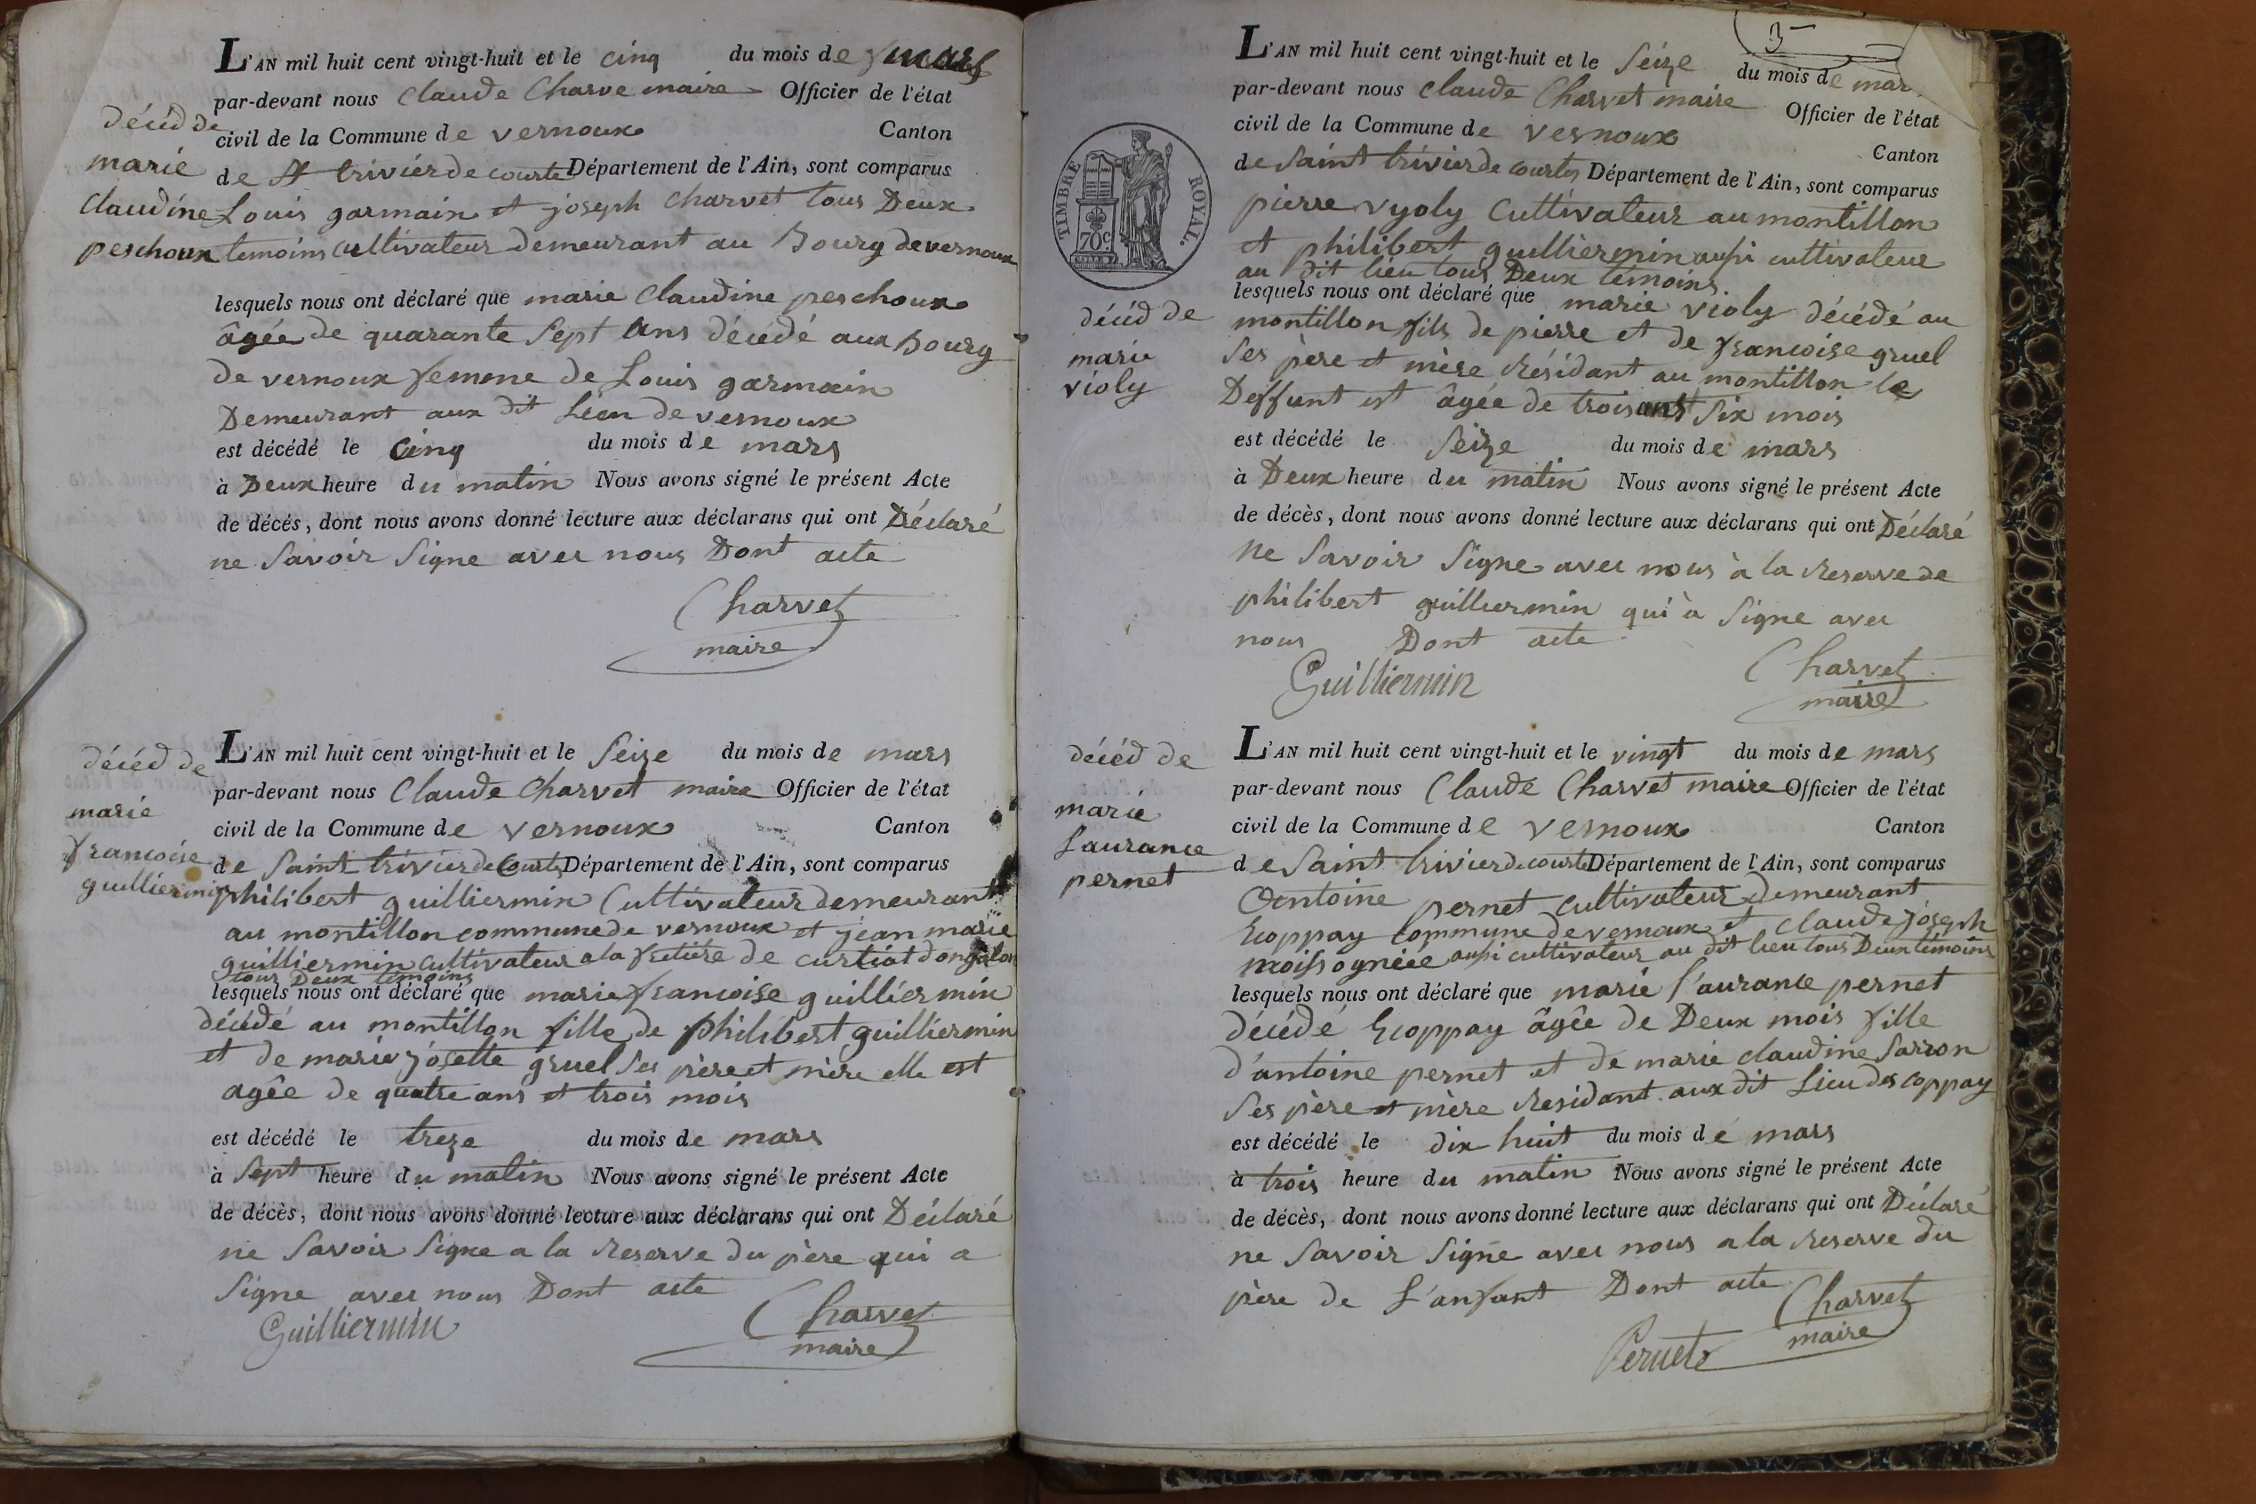 L'AN mil huit cent vingt-huit et le cinq du mois de mars
par-devant nous Claude Charve maire Officier de l'état
civil de la Commune de vernoux Canton
de St trivier de courte Département de l'Ain, sont comparus
Louis garmain et joseph Charvet tous Deux
temoins cultivateur demeurant au Bourg de vernoux
lesquels nous ont déclaré que marie Claudine peschoux
âgée de quarante sept ans décédé aux Bourg
de vernoux femme de Louis garmain
Demeurant aux dit Lieu de vernoux
est décédé le cinq du mois de mars
à Deux heure du matin Nous avons signé le présent Acte
de décés, dont nous avons donné lecture aux déclarans qui ont Déclaré
ne Savoir Signe avec nous Dont acte
Charvet
maire
décéd de
marie
Claudine
peschoux
L'AN mil huit cent vingt-huit et le Seize du mois de mars
par-devant nous Claude Charvet maire Officier de l'état
civil de la Commune de vernoux Canton
de Saint trivier de Courtes Département de l'Ain, sont comparus
philibert guilliermin Cultivateur demeurant
au montillon commune de vernoux et jean marie
guilliermin cultivateur a la fretière de curtiat dongalon
tous Deux témoins
lesquels nous ont déclaré que marie francoise guilliermin
décédé au montillon fille de philibert guilliermin
et de marie josette gruel Ses père et mère elle est
agêe de quatre ans et trois mois
est décédé le treze du mois de mars
à Sept heure du matin Nous avons signé le présent Acte
de décès, dont nous avons donné lecture aux déclarans qui ont Déclaré
ne Savoir Signe a la reserve du père qui a
Signe avec nous Dont acte
Guilliermin
Charvet
maire
décéd de
marie
francoise
guilliermin
3
L'AN mil huit cent vingt-huit et le Seize du mois de mar
par-devant nous Claude Charvet maire Officier de l'état
civil de la Commune de vernoux Canton
de Saint trivier de courtes Département de l'Ain, sont comparus
pierre vyoly Cultivateur au montillon
et philibert guilliermin aussi cultivateur
au dit lieu tous Deux témoins.
lesquels nous ont déclaré que marie violy décédé au
montillon fils de pierre et de francoise gruel
Ses père et mère résidant au montillon le
Deffunt est âgée de trois ans Six mois
est décédé le Seize du mois de mars
à Deux heure du matin Nous avons signé le présent Acte
de décès, dont nous avons donné lecture aux déclarans qui ont Déclaré
Ne Savoir Signe avec nous à la reserve de
philibert guilliermin qui à Signe avec
nous Dont acte
Guilliermin
Charvet
maire
TIMBRE ROYAL.
70c
décéd de
marie
violy
L'AN mil huit cent vingt-huit et le vingt du mois de mars
par-devant nous Claude Charvet maire Officier de l'état
civil de la Commune de vernoux Canton
de Saint trivier de courte Département de l'Ain, sont comparus
Antoine pernet cultivateur demeurant
Ecoppay Commune de vernoux et claude joseph
moissognée aussi cultivateur au dit lieu tous Deux témoins
lesquels nous ont déclaré que marie l'aurance pernet
décédé Ecoppay âgêe de Deux mois fille
d'antoine pernet et de marie claudine Sarron
Ses père et mère residant aux dit Lieu des coppay
est décédé le dix huit du mois dé mars
à trois heure du matin Nous avons signé le présent Acte
de décès, dont nous avons donné lecture aux déclarans qui ont Déclaré
ne Savoir Signe avec nous a la reserve du
père de L'anfant Dont acte
Charvet
maire
Pernete
décéd de
marie
Laurance
pernet